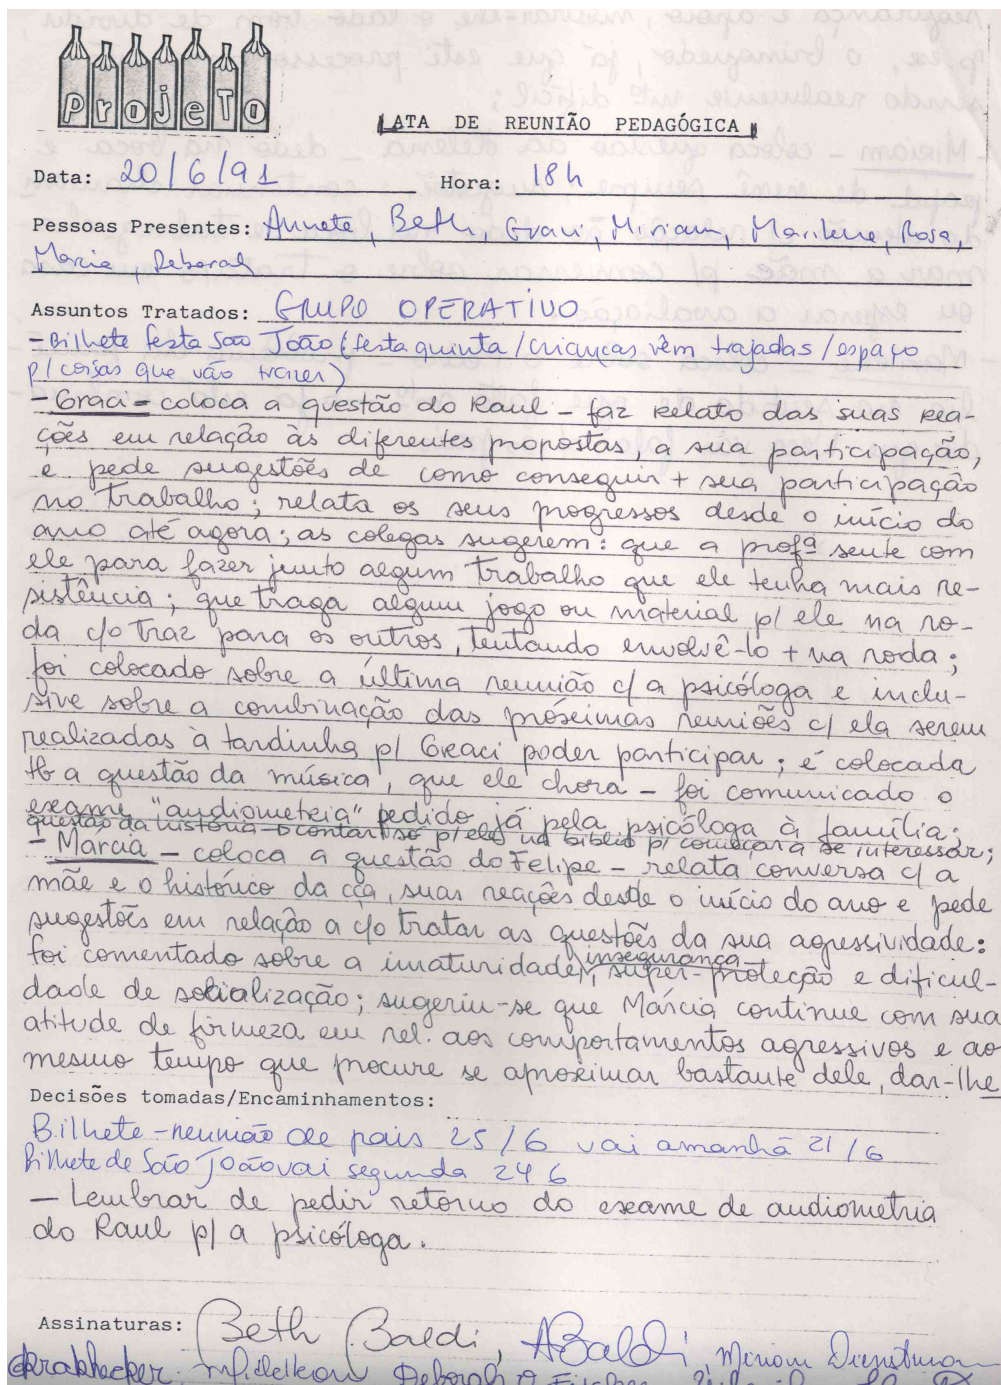 Projeto
ATA DE REUNIÃO PEDAGÓGICA
Data: 20/6/91 Hora: 18h
Pessoas Presentes: Annete, Beth, Graci, Miriam, Marilene, Rosa,
Marcia, Deborah
Assuntos Tratados: GRUPO OPERATIVO
- Bilhete festa São João (festa quinta / crianças vêm trajadas / espaço
p/ coisas que vão trazer)
- Graci - coloca a questão do Raul - faz relato das suas rea-
ções em relação às diferentes propostas, a sua participação,
e pede sugestões de como conseguir + sua participação
no trabalho; relata os seus progressos desde o início do
ano até agora; as colegas sugerem: que a profª sente com
ele para fazer junto algum trabalho que ele tenha mais re-
sistência; que traga algum jogo ou material p/ ele na ro-
da c/o traz para os outros, tentando envolvê-lo + na roda;
foi colocado sobre a última reunião c/ a psicóloga e inclu-
sive sobre a combinação das próximas reuniões c/ ela serem
realizadas à tardinha p/ Graci poder participar; é colocada
tb a questão da música, que ele chora - foi comunicado o
exame "audiometria" pedido já pela psicóloga à família;
questão da história - contar só p/ ele na biblio p/ começar a se interessar;
- Marcia - coloca a questão do Felipe - relata conversa c/ a
mãe e o histórico da cça, suas reações desde o início do ano e pede
sugestões em relação a c/o tratar as questões da sua agressividade:
foi comentado sobre a imaturidade, insegurança, super-proteção e dificul-
dade de socialização; sugeriu-se que Márcia continue com sua
atitude de firmeza em rel. aos comportamentos agressivos e ao
mesmo tempo que procure se aproximar bastante dele, dar-lhe
Decisões tomadas/Encaminhamentos:
Bilhete - reunião de pais 25/6 vai amanhã 21/6
Bilhete de São João vai segunda 24 6
- Lembrar de pedir retorno do exame de audiometria
do Raul p/ a psicóloga.
Assinaturas: Beth Baldi, ABaldi, Miriam
Deborah